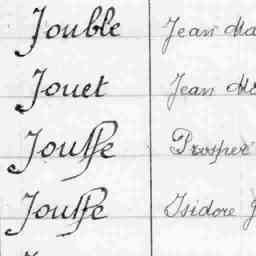 Jouble Jean Ma
Jouet Jean M
Jouffe Prosper
Jouffe Isidore